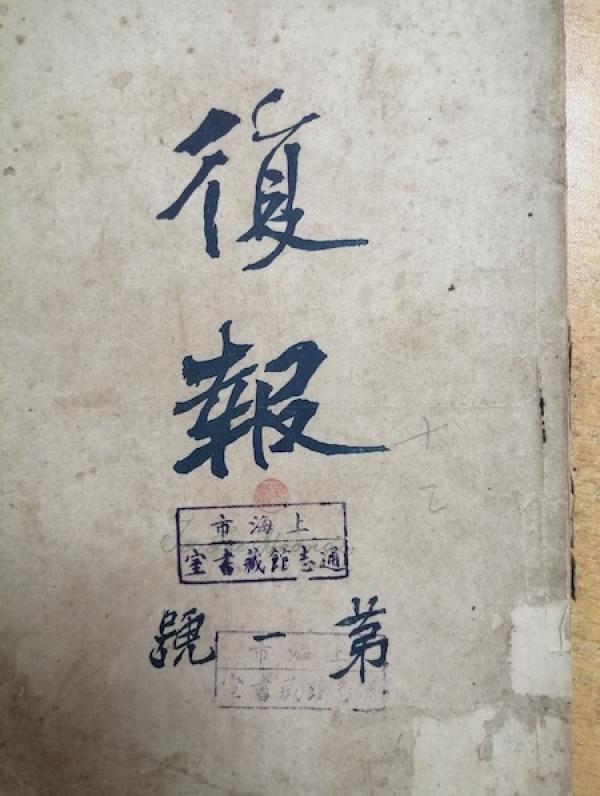 復
報
上海市
通志館藏書室
第一號
上海市
通志館藏書室